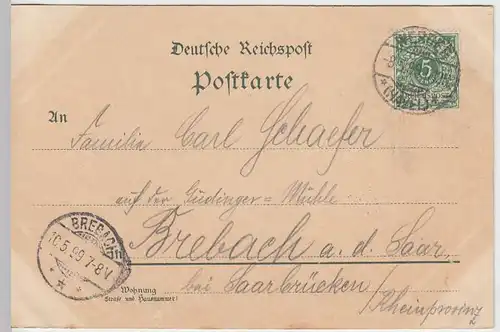 Deutsche Reichspost
Postkarte
An
Familie Carl Schaefer
auf der Güdinger=Mühle
in Brebach a. d. Saar,
bei Saarbrücken
/Rheinprovinz
Wohnung
(Straße und Hausnummer)
5
BREBACH
10.5.99 7-8V